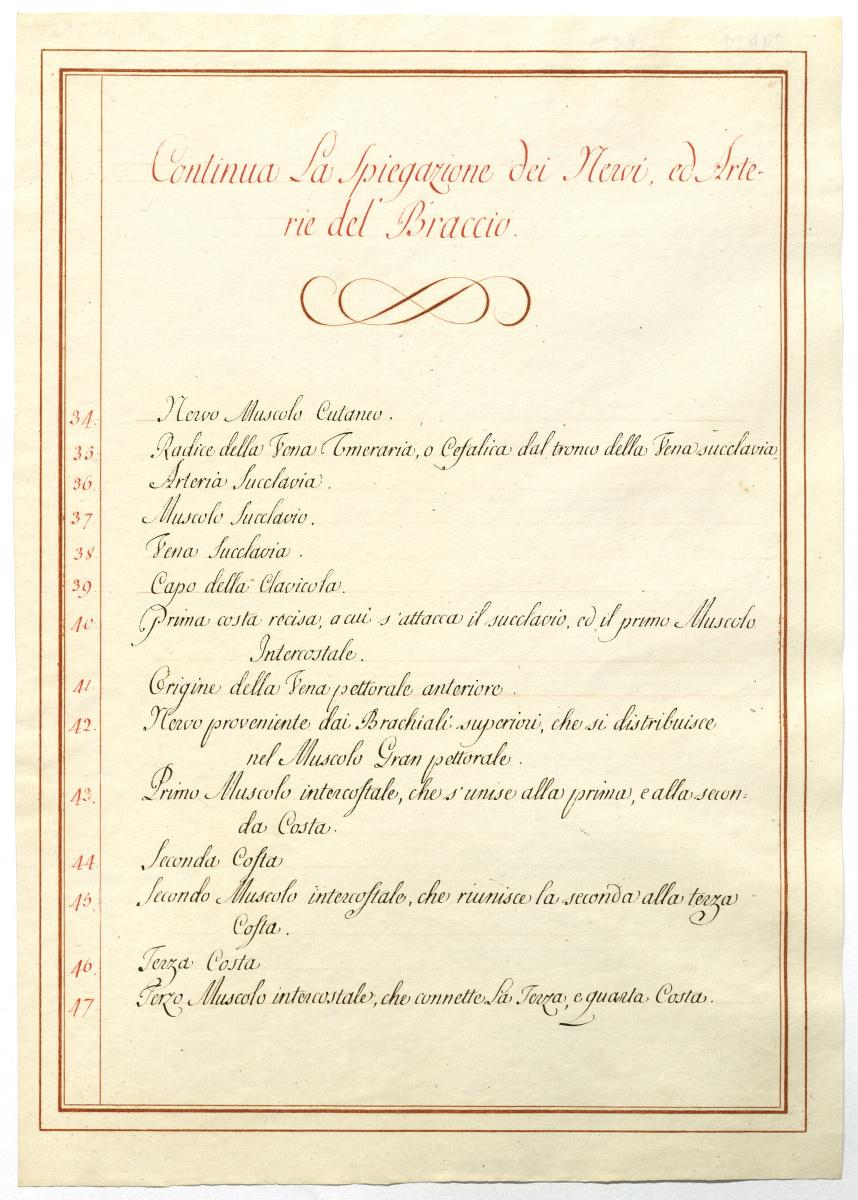 Continua La Spiegazione dei Nervi, ed Arte-
rie del Braccio.
34. Nervo Muscolo Cutaneo.
35. Radice della Vena Umeraria, o Cefalica dal tronco della Vena succlavia
36. Arteria Succlavia.
37 Muscolo Succlavio.
38. Vena Succlavia.
39 Capo della Clavicola.
40. Prima costa recisa, a cui s'attacca il succlavio, ed il primo Muscolo
Intercostale.
41 Origine della Vena pettorale anteriore.
42. Nervo proveniente dai Brachiali superiori, che si distribuisce
nel Muscolo Gran pettorale.
43. Primo Muscolo intercostale, che s'unise alla prima, e alla secon=
da Costa.
44 Seconda Costa
45. Secondo Muscolo intercostale, che riunisce la seconda alla terza
Costa.
46. Terza Costa
47 Terzo Muscolo intercostale, che connette La Terza, e quarta Costa.